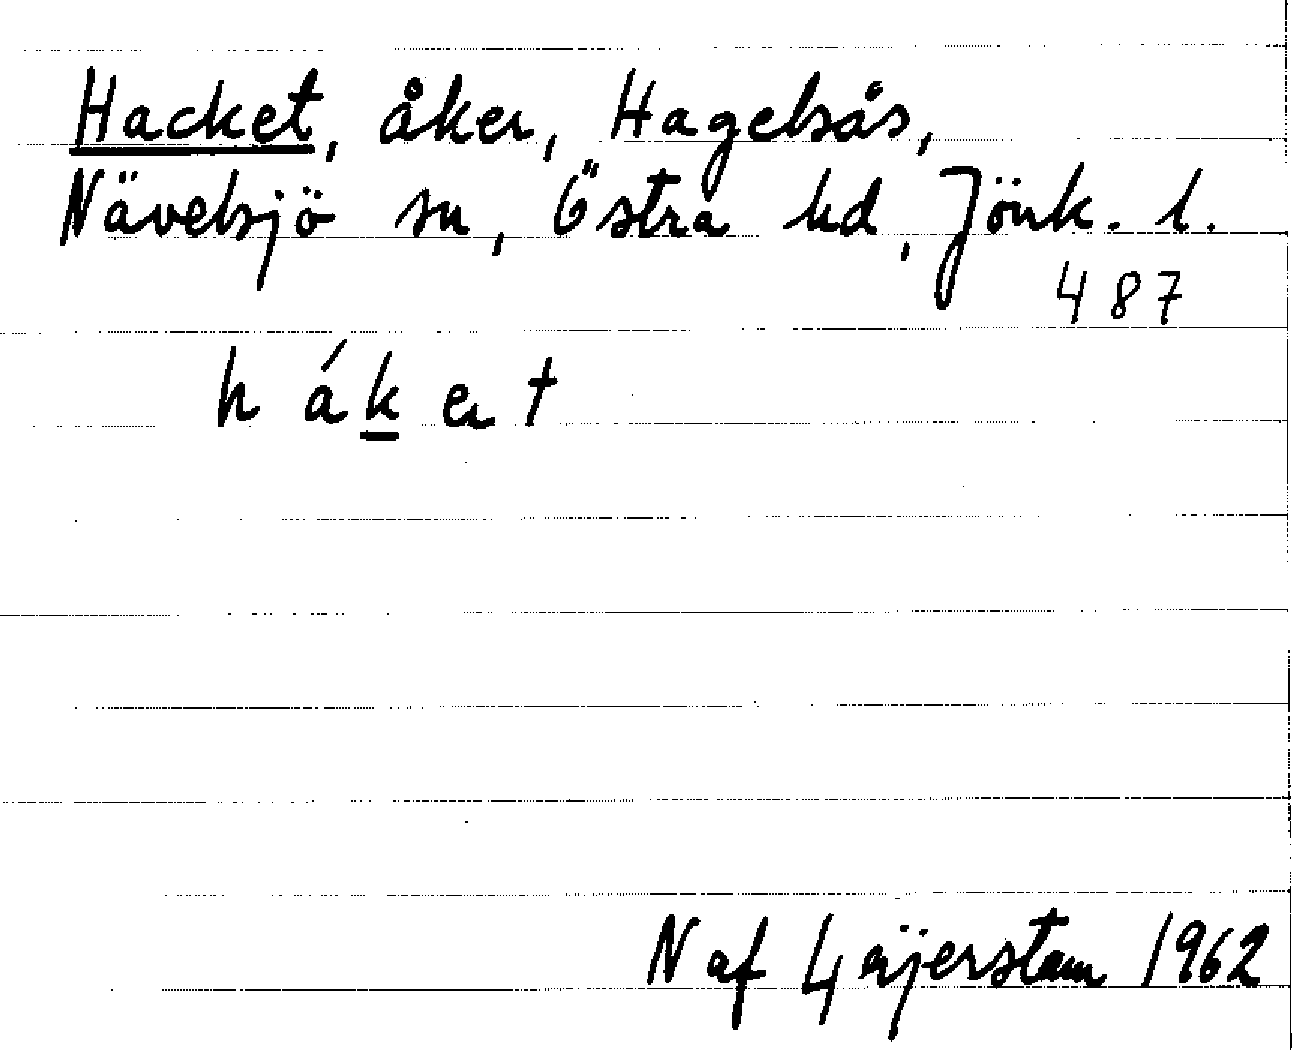 Hacket, åker, Hagelsås,
Nävelsjö sn, Östra hd, Jönk. l.
487
h á k e t
N af Geijerstam 1962